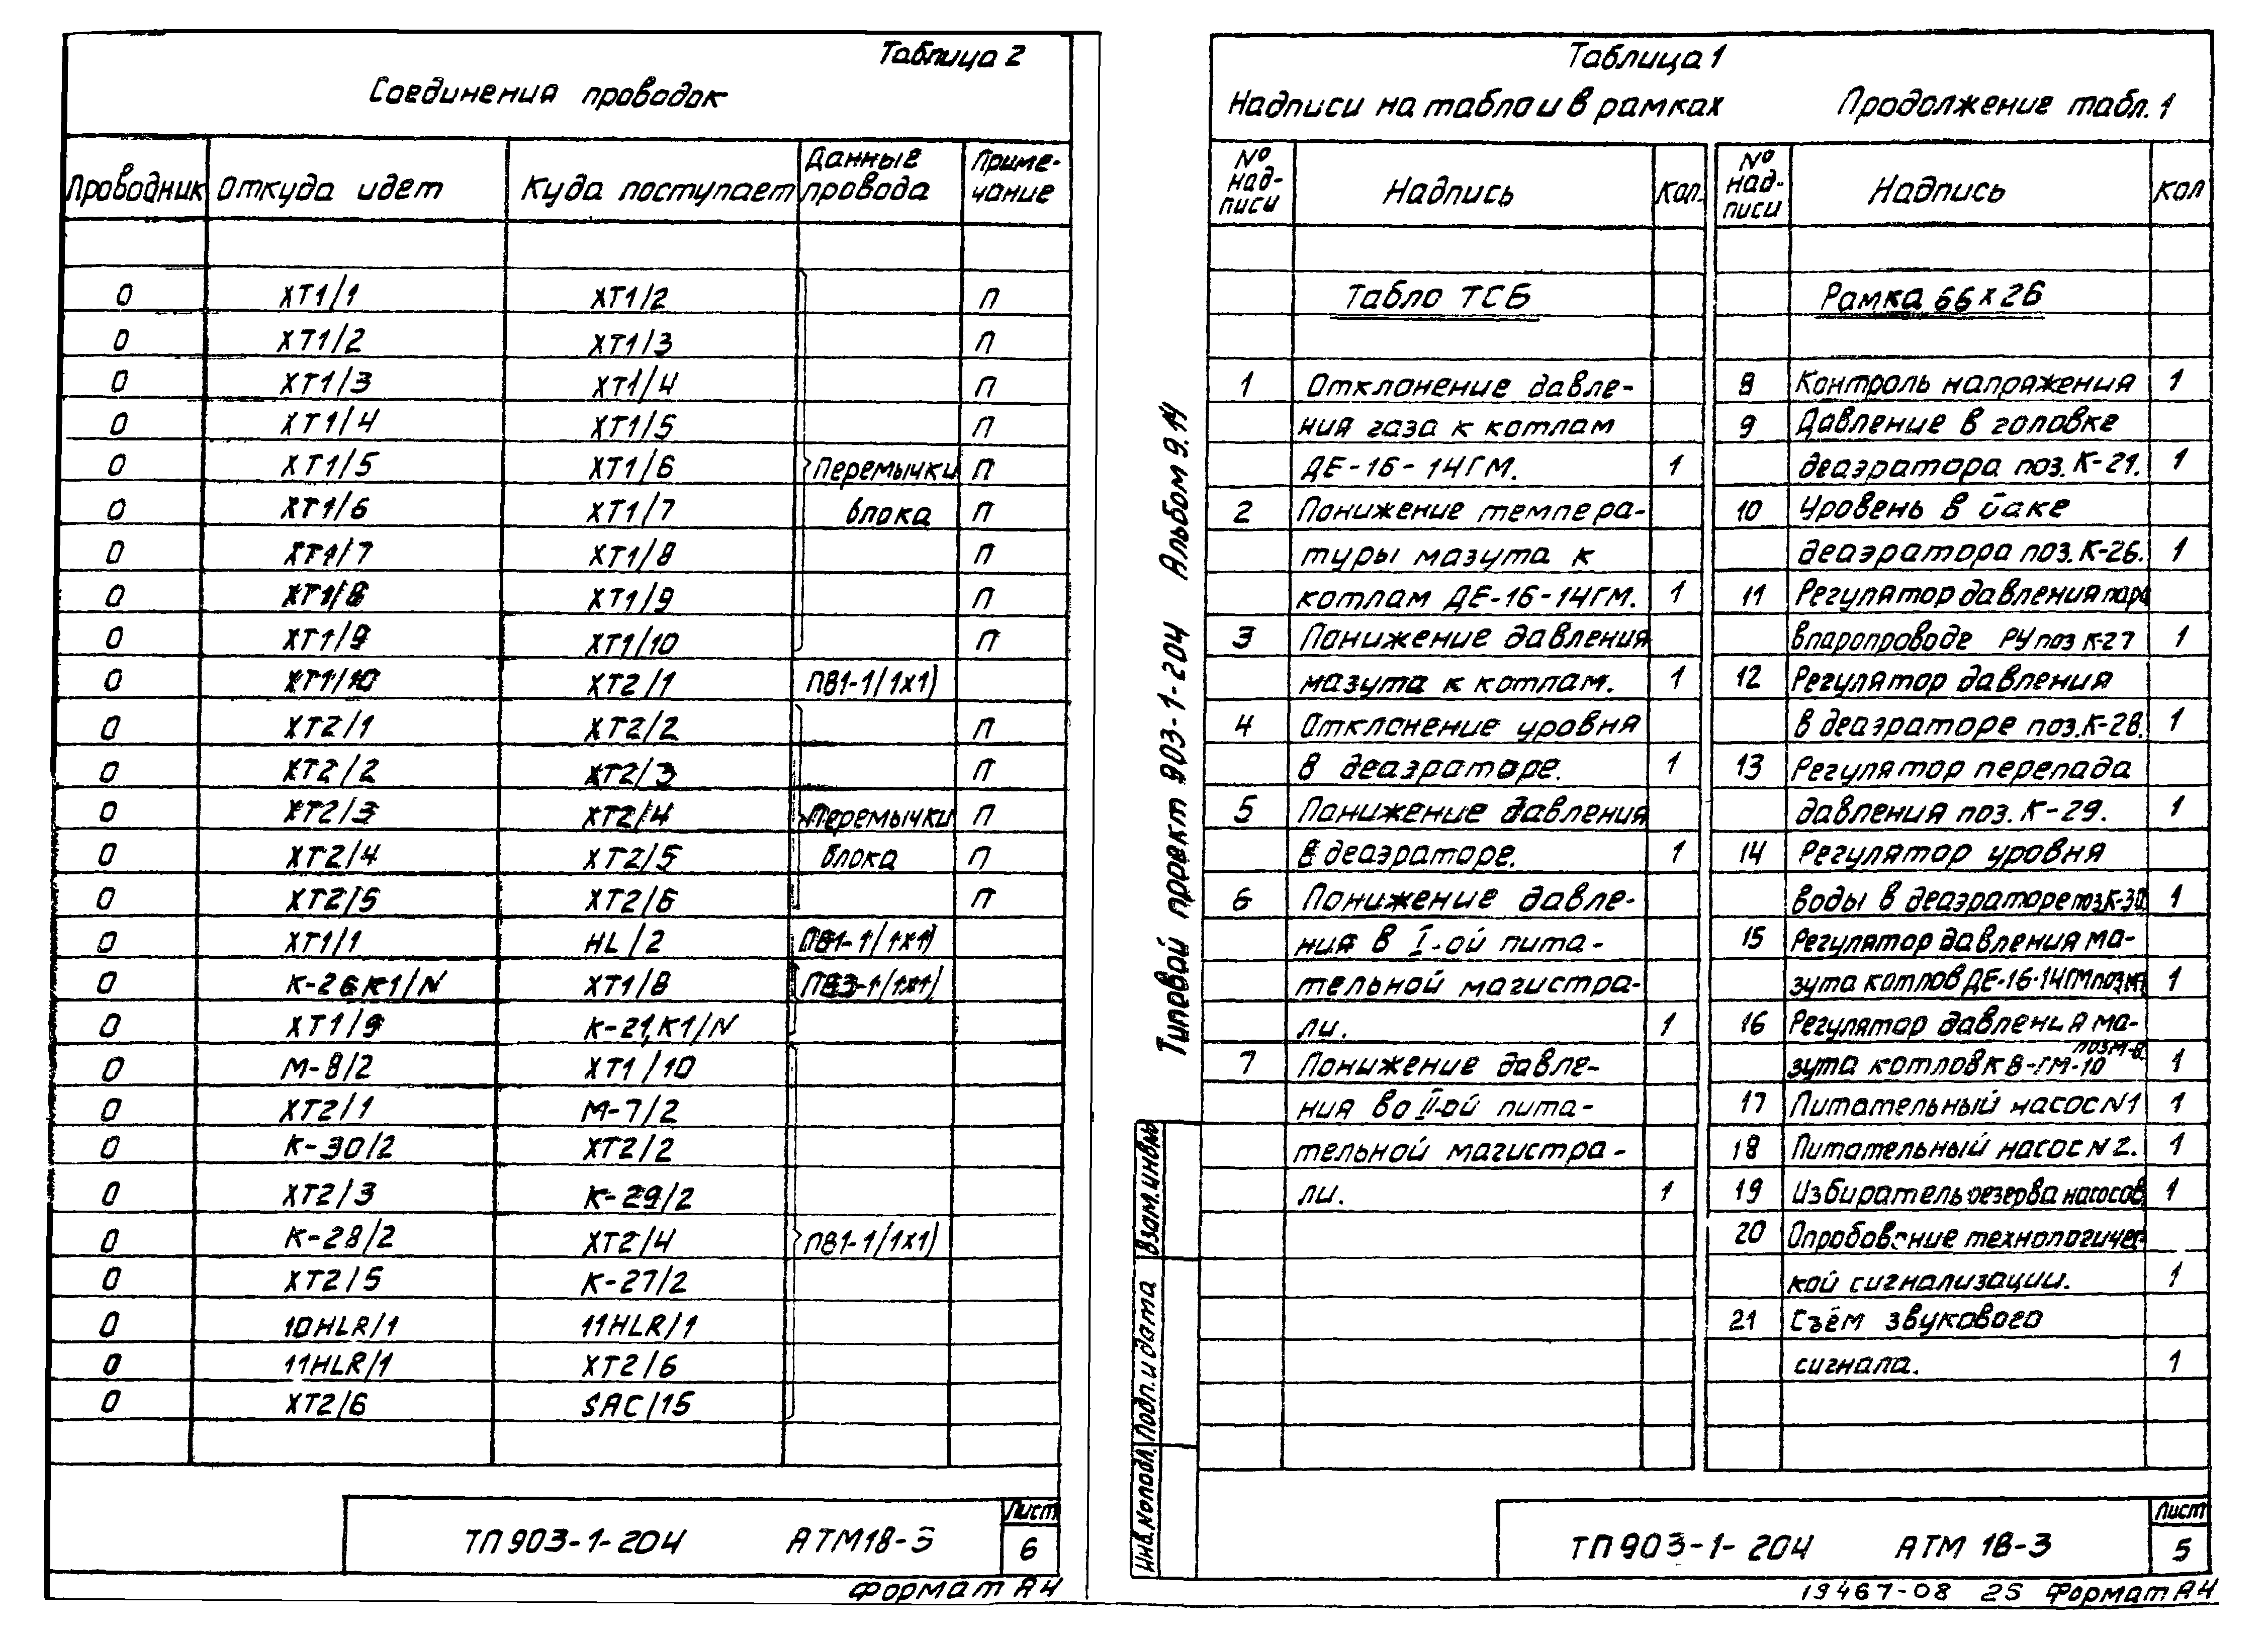 Таблица 2
Соединения проводок
Проводник Откуда идет Куда поступает Данные провода Примечание
0 ХТ1/1 ХТ1/2 П
0 ХТ1/2 ХТ1/3 П
0 ХТ1/3 ХТ1/4 П
0 ХТ1/4 ХТ1/5 П
0 ХТ1/5 ХТ1/6 Перемычки П
0 ХТ1/6 ХТ1/7 блока П
0 ХТ1/7 ХТ1/8 П
0 ХТ1/8 ХТ1/9 П
0 ХТ1/9 ХТ1/10 П
0 ХТ1/10 ХТ2/1 ПВ1-1/1х1)
0 ХТ2/1 ХТ2/2 П
0 ХТ2/2 ХТ2/3 П
0 ХТ2/3 ХТ2/4 Перемычки П
0 ХТ2/4 ХТ2/5 блока П
0 ХТ2/5 ХТ2/6 П
0 ХТ1/1 HL/2 ПВ1-1/1х1)
0 К-26К1/N ХТ1/8 ПВ3-1/1х1)
0 ХТ1/9 К-21,К1/N
0 М-8/2 ХТ1/10
0 ХТ2/1 М-7/2
0 К-30/2 ХТ2/2
0 ХТ2/3 К-29/2
0 К-28/2 ХТ2/4 ПВ1-1/1х1)
0 ХТ2/5 К-27/2
0 10HLR/1 11HLR/1
0 11HLR/1 ХТ2/6
0 ХТ2/6 SAC/15
ТП903-1-204 АТМ18-3
Лист
6
Формат А4
Типовой проект 903-1-204 Альбом 9.14
Взам.инв№
Подп.и дата
Инв.№подл.
Таблица 1
Надписи на табло и в рамках
№ надписи Надпись Кол.
Табло ТСБ
1 Отклонение давле-
ния газа к котлам
ДЕ-16-14ГМ. 1
2 Понижение темпера-
туры мазута к
котлам ДЕ-16-14ГМ. 1
3 Понижение давления
мазута к котлам. 1
4 Отклонение уровня
в деаэраторе. 1
5 Понижение давления
в деаэраторе. 1
6 Понижение давле-
ния в I-ой пита-
тельной магистра-
ли. 1
7 Понижение давле-
ния во II-ой пита-
тельной магистра-
ли. 1
Продолжение табл. 1
№ надписи Надпись Кол
Рамка 66х26
8 Контроль напряжения 1
9 Давление в головке
деаэратора поз. К-21. 1
10 Уровень в баке
деаэратора поз. К-26. 1
11 Регулятор давления пара
в паропроводе РУ поз К-27 1
12 Регулятор давления
в деаэраторе поз.К-28. 1
13 Регулятор перепада
давления поз. К-29. 1
14 Регулятор уровня
воды в деаэраторе поз.К-30 1
15 Регулятор давления ма-
зута котлов ДЕ-16-14ГМ 1
16 Регулятор давления ма-
зута котлов КВ-ГМ-10 поз М-8. 1
17 Питательный насос N1 1
18 Питательный насос N2. 1
19 Избиратель резерва насосов 1
20 Опробование технологичес-
кой сигнализации. 1
21 Съём звукового
сигнала. 1
ТП903-1-204 АТМ 18-3
Лист
5
19467-08 25 Формат А4